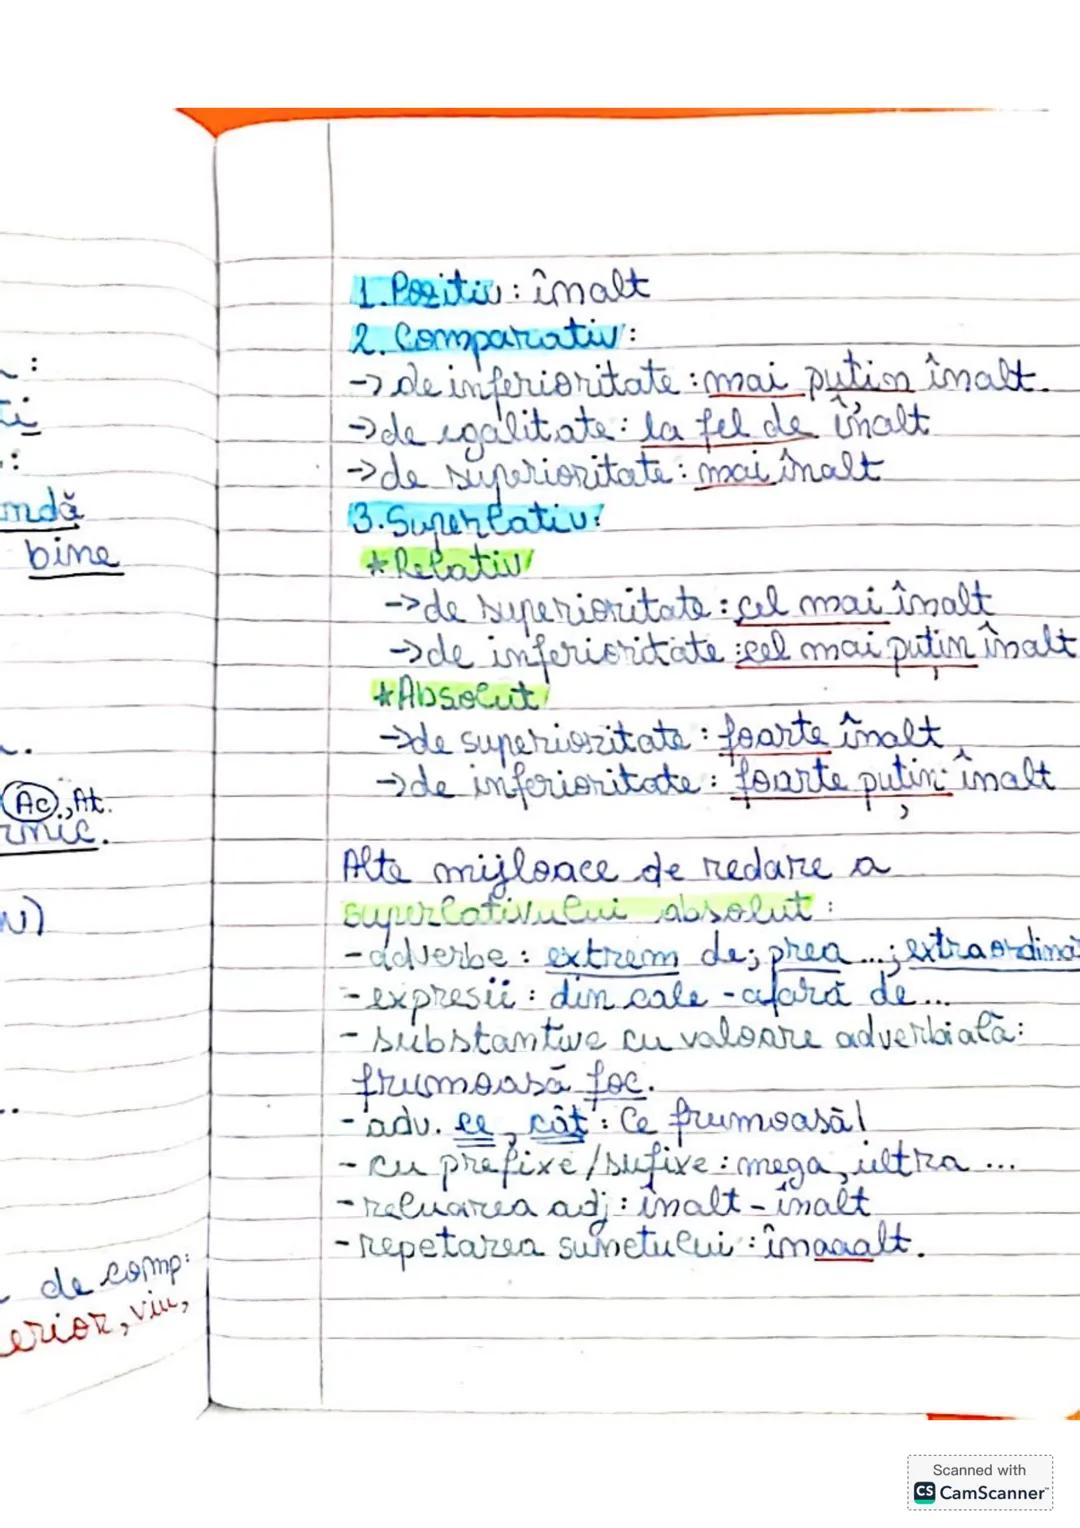 :
ti
:
ndă
bine
Ac., At.
rnic.
N)
de comp:
erior, viu,
1. Pozitiv: înalt
2. Comparativ:
-> de inferioritate: mai puțin înalt.
-> de egalitate: la fel de înalt
-> de superioritate: mai înalt
3. Superlativ:
* Relativ
-> de superioritate: cel mai înalt
-> de inferioritate: cel mai puțin înalt
* Absolut
-> de superioritate: foarte înalt
-> de inferioritate: foarte puțin înalt
Alte mijloace de redare a
superlativului absolut:
- adverbe: extrem de; prea ...; extraordinar
- expresii: din cale-afară de...
- substantive cu valoare adverbială:
frumoasă foc.
- adv. ce, cât: Ce frumoasă!
- cu prefixe/sufixe: mega, ultra ...
- reluarea adj: înalt-înalt
- repetarea sunetului: înaaalt.
Scanned with
CS CamScanner